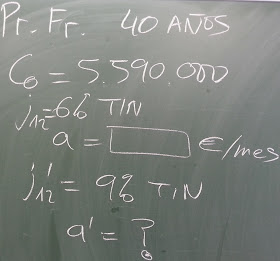 Pr. Fr. 40 AÑOS
C₀ = 5.590.000
j₁₂ = 6% TIN
a = €/mes
j'₁₂ = 9% TIN
a' = ?